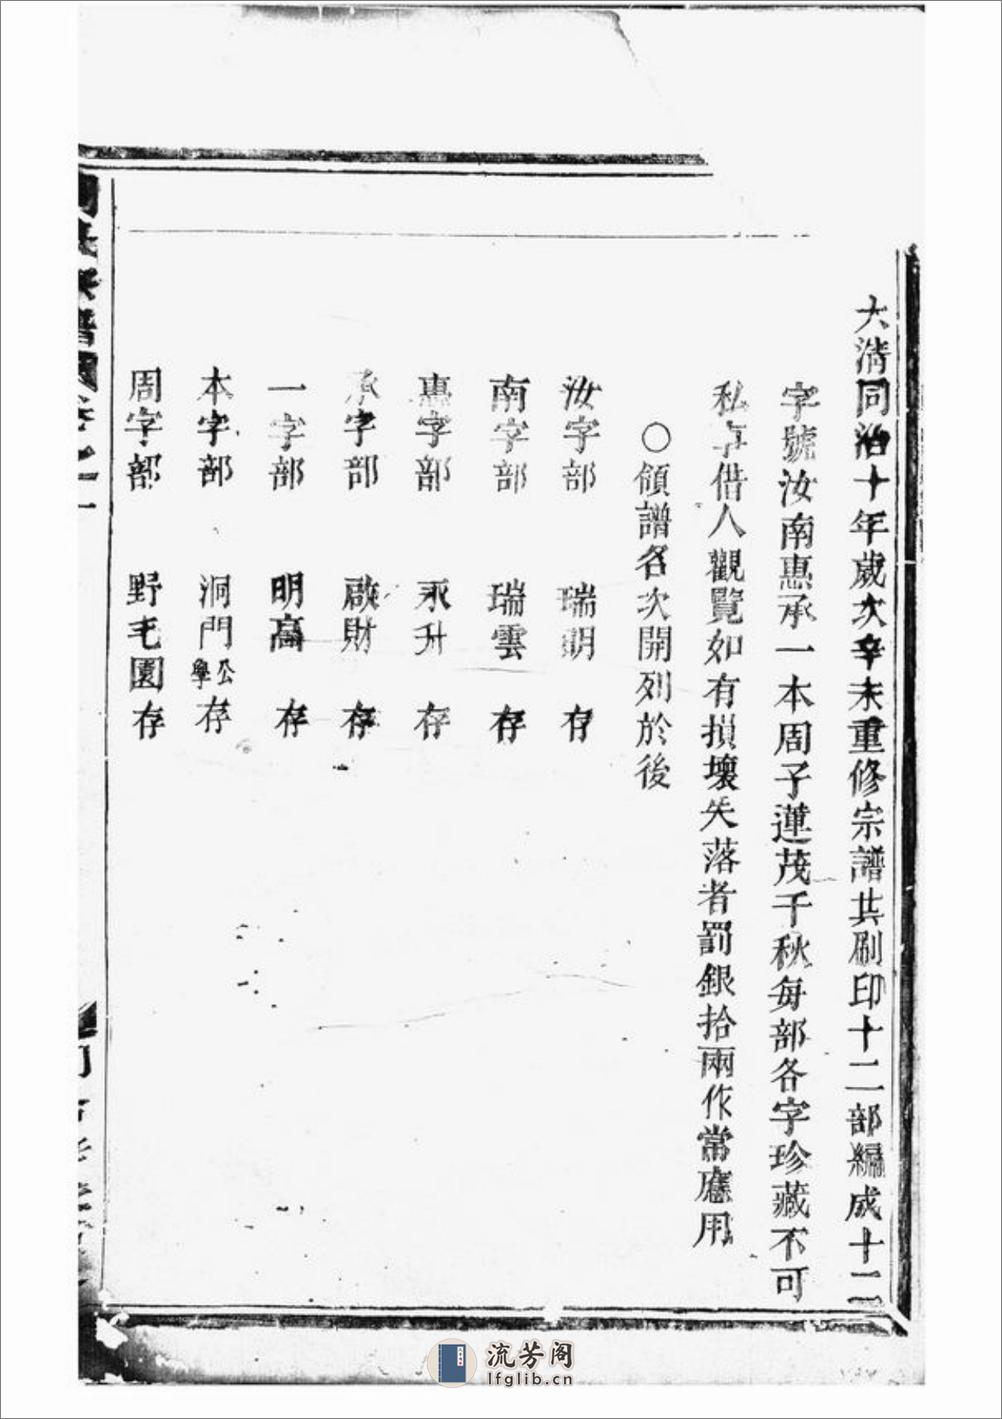 大清同治十年歲次辛未重修宗譜共刷印十二部編成十二
字號汝南惠承一本周子蓮茂千秋每部各字珍藏不可
私与借人觀覽如有損壞失落者罰銀拾兩作常應用
○領譜名次開列於後
汝字部 瑞明 存
南字部 瑞雲 存
惠字部 永升 存
承字部 啟財 存
一字部 明高 存
本字部 洞門公學 存
周字部 野毛園 存
氏宗譜 卷之一
流芳阁
lfglib.cn